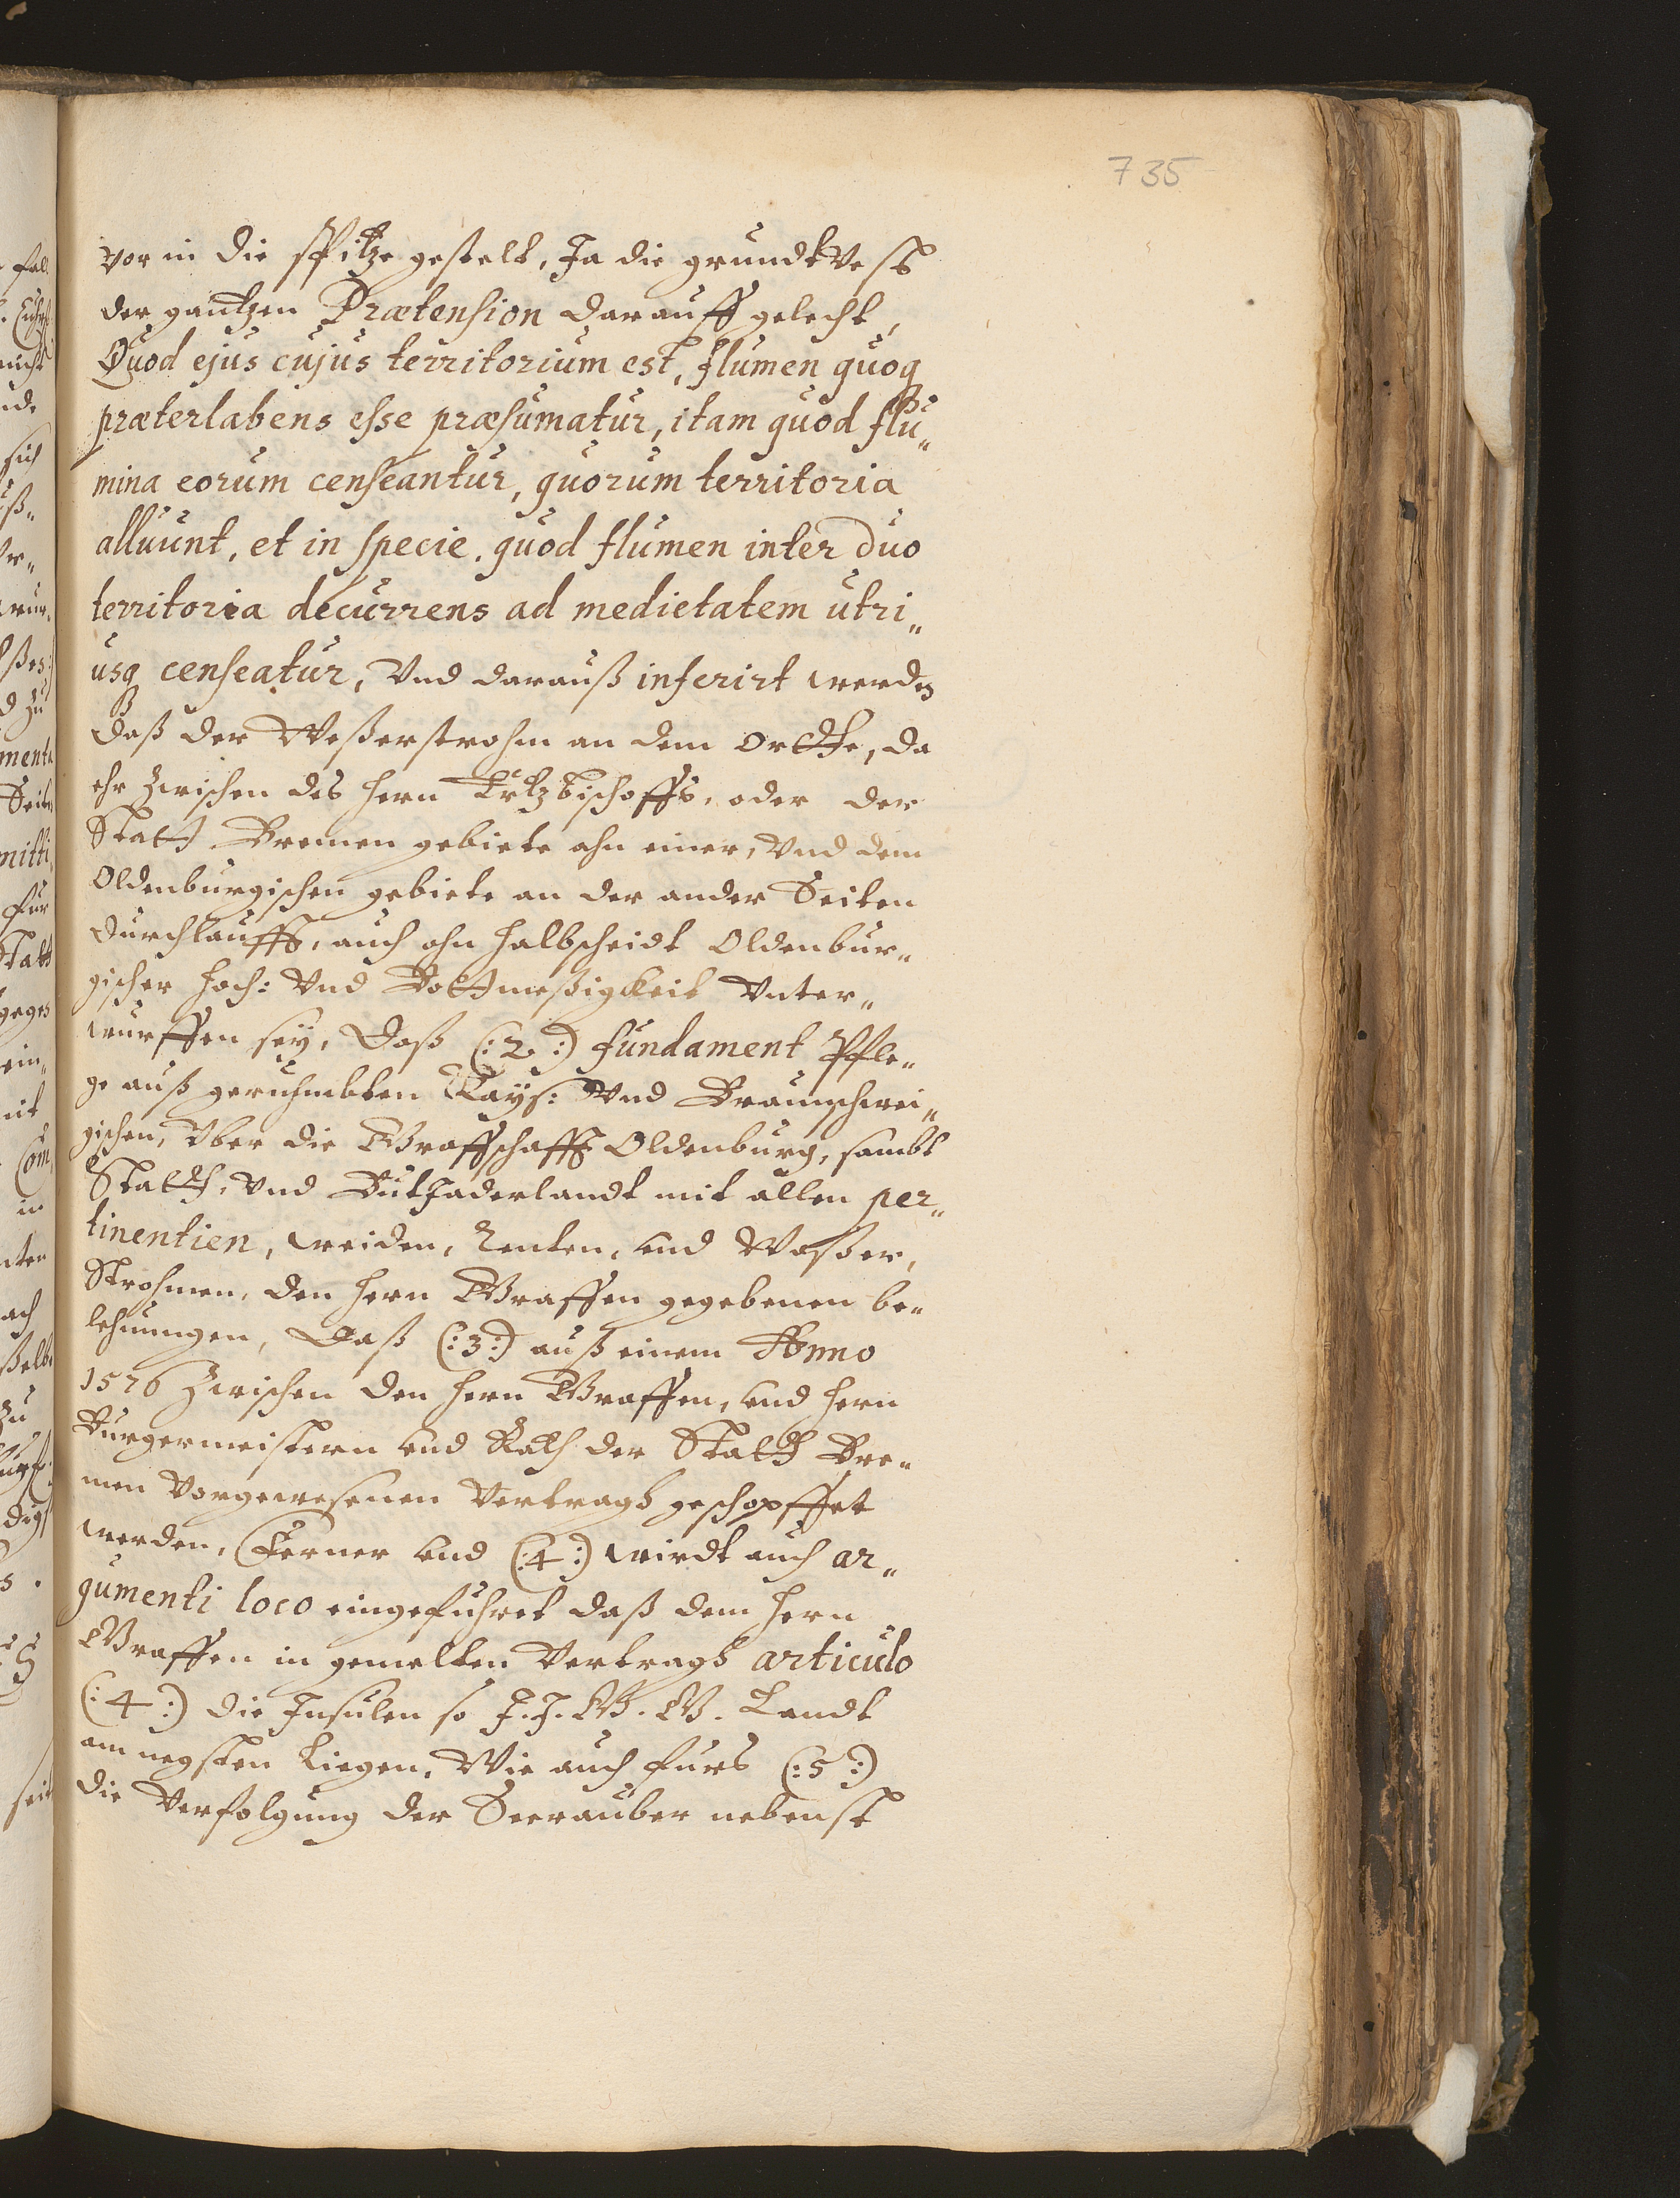 735
vor in die spitze gestelt, Ja die grundtvest
der gantzen Prætension darauff gelecht,
Quod ejus cujus territorium est, flumen quoq
præterlabens esse præsumatur, itam quod flu„
mina eorum censeantur, quorum territoria
alluunt, et in specie. quod flumen inter duo
territoria decurrens ad medietatem utri„
usq censeatur, Und darauß inferirt werden
daß der Weßerstrohm an dem Ortthe, da
ehr zwischen des herrn Ertzbischoffs, oder der
Statt Bremen gebiete ahn einer, Und dem
Oldenburgischen gebiete an der ander Seiten
durchlauffs, auch ahn halbscheidt Oldenbur„
gischer hoch: Und Bottmeßigkeit Unter„
wurffen sey, Daß (:2:) fundament Pfle„
ge auß geruhmbten Kays: Und Braunschwei„
gischen, Uber die Graffschafft Oldenburg, sambt
Statth, Und Butjaderlandt mit allen per„
tinentien, weiden, Renten, und Waßer,
Strohmen, den herrn Graffen gegebenen be„
lehnungen, Daß (:3:) auß einem Anno
1576 zwischen den herrn Graffen, und herrn
Burgermeistern und Rath der Statth Bre„
men Vorgewesenen Vertragh geschopffet
werden, Ferner und (:4:) wirdt auch ar„
gumenti loco eingefuhret daß dem herrn
Graffen in gemelten Vertragh articulo
(:4:) die Insulen so J. J. G. G. Landt
am negsten liegen, Wie auch furs (:5:)
die Verfolgung der Seerauber nebenst